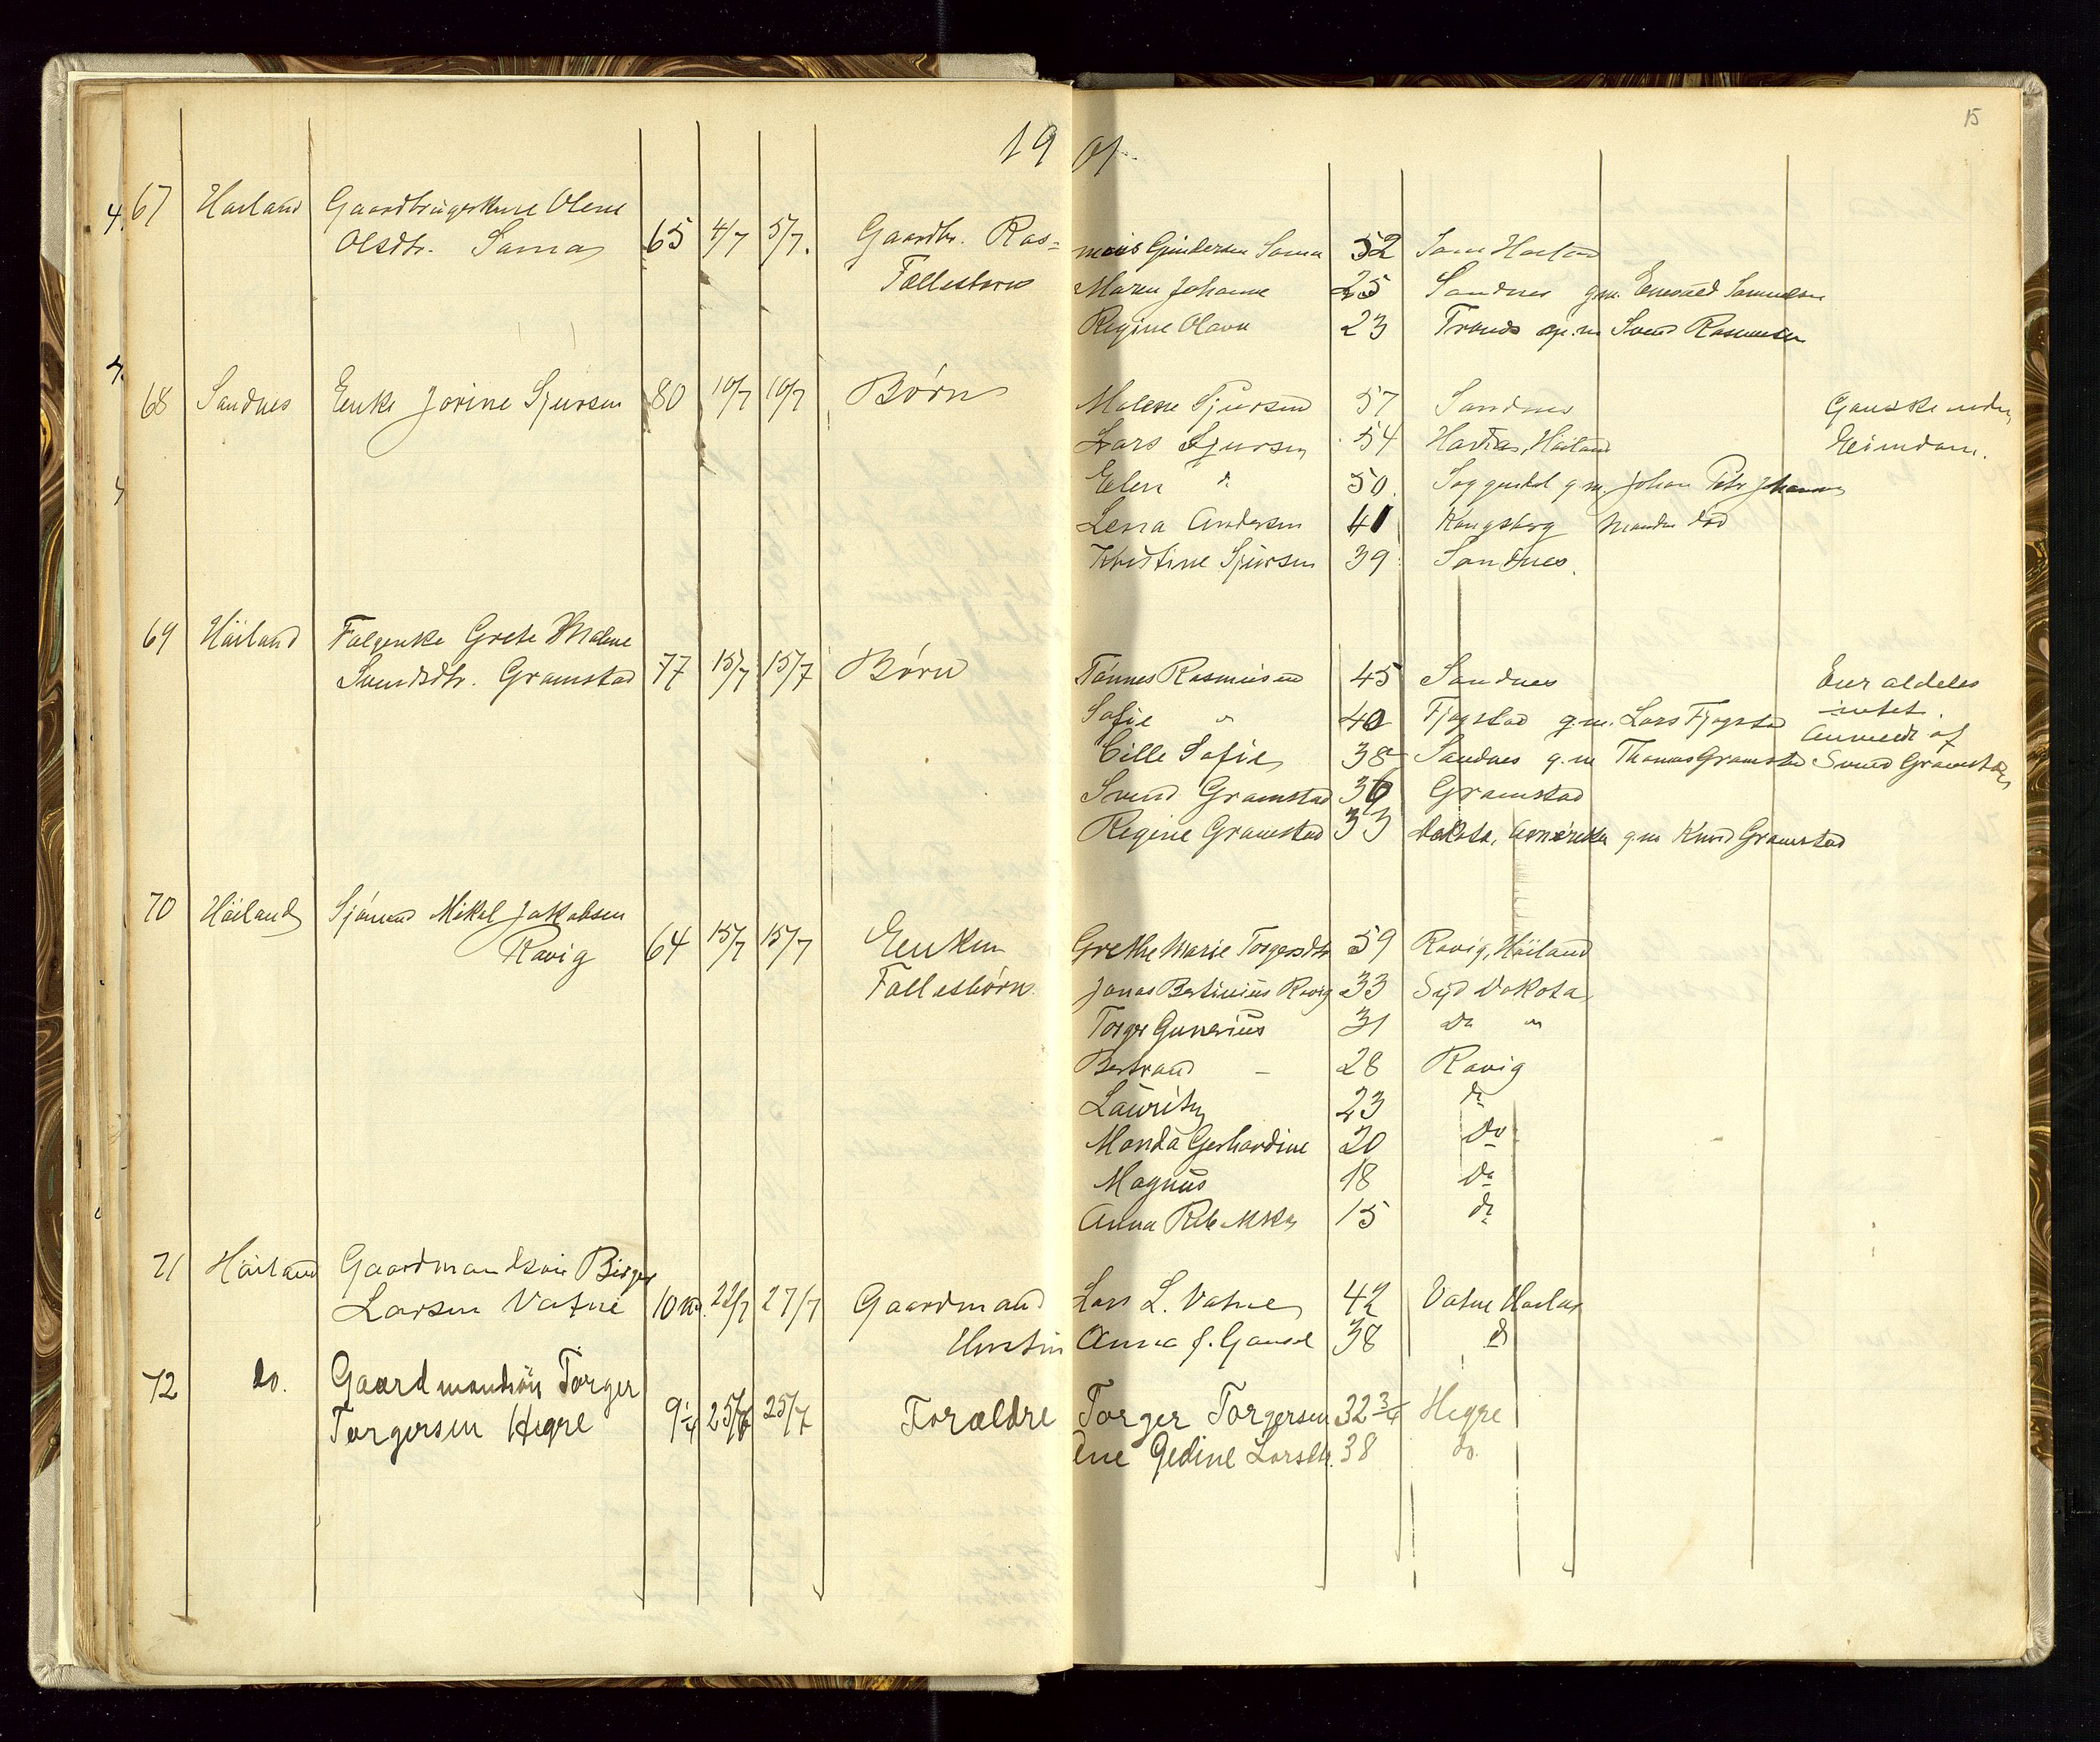 15
19 01
67 Høiland Gaardbrugerkone Olene
Olsdtr. Soma 65 4/7 5/7. Gaardbr. Ras=
mus Gundersen Soma 52 Soma Høiland
Fællesbørn Maren Johanne 25 Sandnes g.m. Enevald Samuelsen
Regine Olava 23 g.m. Svend Rasmussen
68 Sandnes Enke Jorine Sjursen 80 10/7 10/7 Børn
Malene Sjursen 57 Sandnes Ganske uden
Lars Sjursen 54 Høiland Eiendom.
Elen do 50. g.m. Johan Petr Johannes
Lena Andersen 41 Kongsberg Manden død
Kristine Sjursen 39 Sandnes.
69 Høiland Enke Grete Malene
Svendsdtr. Gramstad 77 15/7 15/7 Børn
Tønnes Rasmussen 45 Sandnes Eier aldeles
Sofie " 40 Fjogstad g.m. Lars Fjogstad intet.
Anmeldt af
Cille Sofie 38 Sandnes g.m Thomas Gramstad Svend Gramstad
Svend Gramstad 36 Gramstad
Regine Gramstad 33 Dakota, Amerika g.m Knud Gramstad
70 Høiland Sjømand Mikal Jakobsen
Rovig 64 15/7 15/7 Enken
Grethe Marie Torgersdtr 59 Rovig, Høiland
Fællesbørn Jonas Bertinius Rovig 33 Syd Dakota
Torger Gunerius 31 do "
Bertrand - 28 Rovig
Lauritz 23 do
Manda Gerhardine 20 do
Magnus 18 do
Anna Rebekka 15 do
71 Høiland Gaardmandsøn Birger
Larsen Vatne 10 22/7 27/7 Gaardmand
Lars L. Vatne 42 Vatne Høiland
Hustru Anna J. Gausel 38 do
72 do. Gaardmandsøn Torger
Torgersen Hegre 9 1/4 25/7 25/7 Forældre
Torger Torgersen 32 3/4 Hegre
Ane Gedine Larsdtr. 38 do.